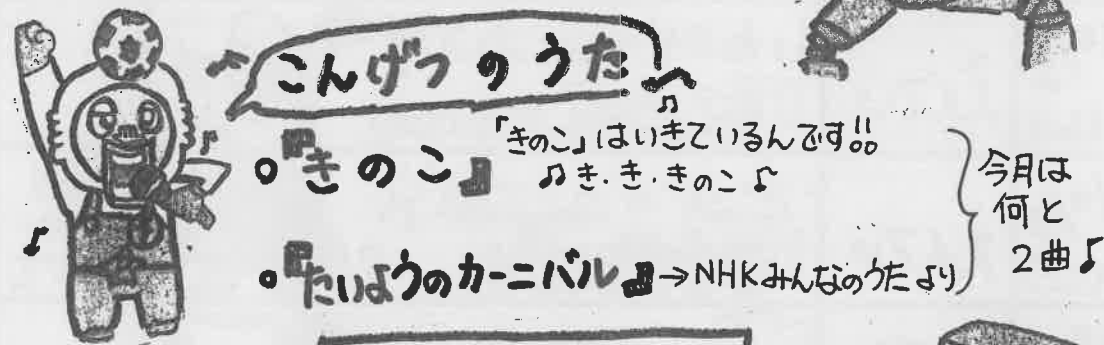 こんげつのうた
。『きのこ』
「きのこ」はいきているんです!!
♫き・き・きのこ♪
。『たいようのカーニバル』→NHKみんなのうたより
今月は
何と
2曲♪